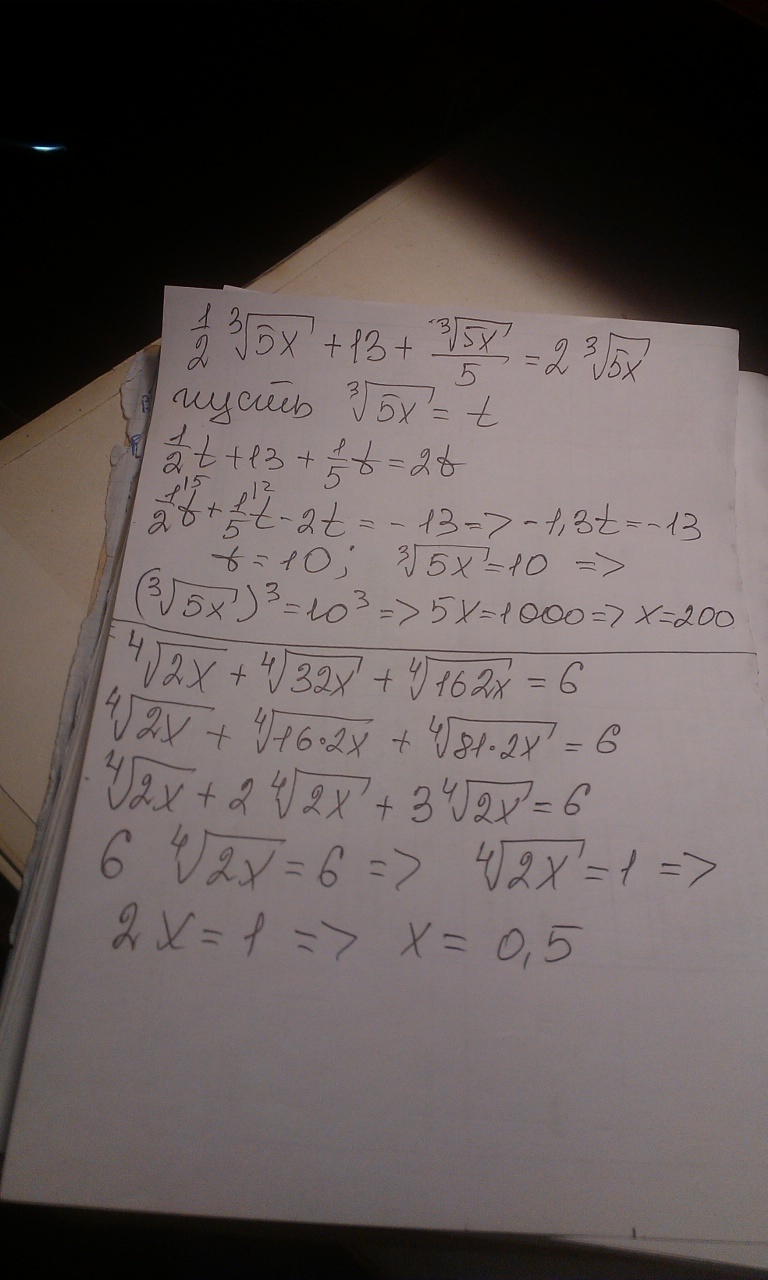 1/2 ∛5x + 13 + ∛5x/5 = 2 ∛5x
пусть ∛5x = t
1/2 t + 13 + 1/5 t = 2t
1/2 t |5 + 1/5 t |2 - 2t = -13 => -1,3t = -13
t = 10; ∛5x = 10 =>
(∛5x)³ = 10³ => 5x = 1000 => x = 200
∜2x + ∜32x + ∜162x = 6
∜2x + ∜16·2x + ∜81·2x = 6
∜2x + 2 ∜2x + 3 ∜2x = 6
6 ∜2x = 6 => ∜2x = 1 =>
2x = 1 => x = 0,5